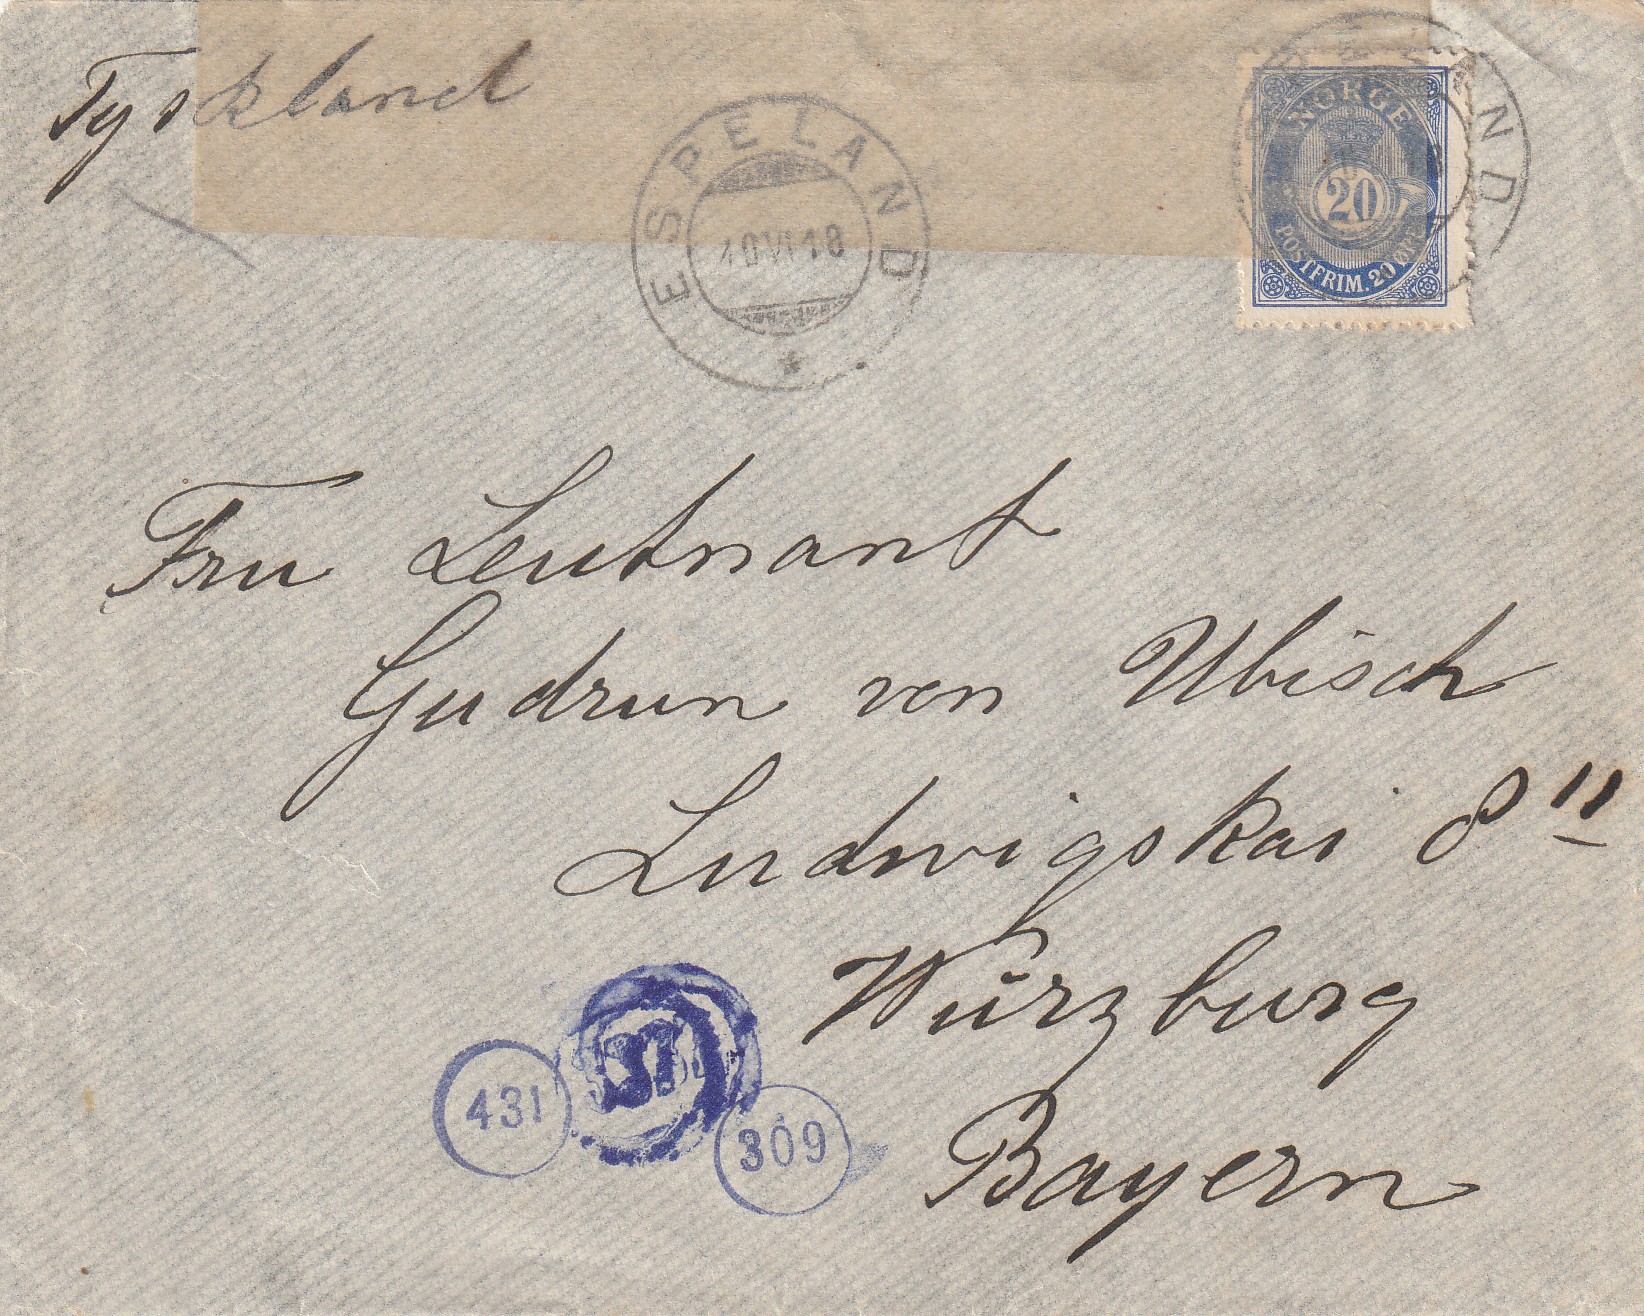 Tyskland
ESPELAND
10 VI 18
ESPELAND
NORGE
20
POSTFRIM. 20 ØRE
Fru Leutnant
Gudrun von Ubisch
Ludwigskai 8 II
Würzburg
Bayern
431
309